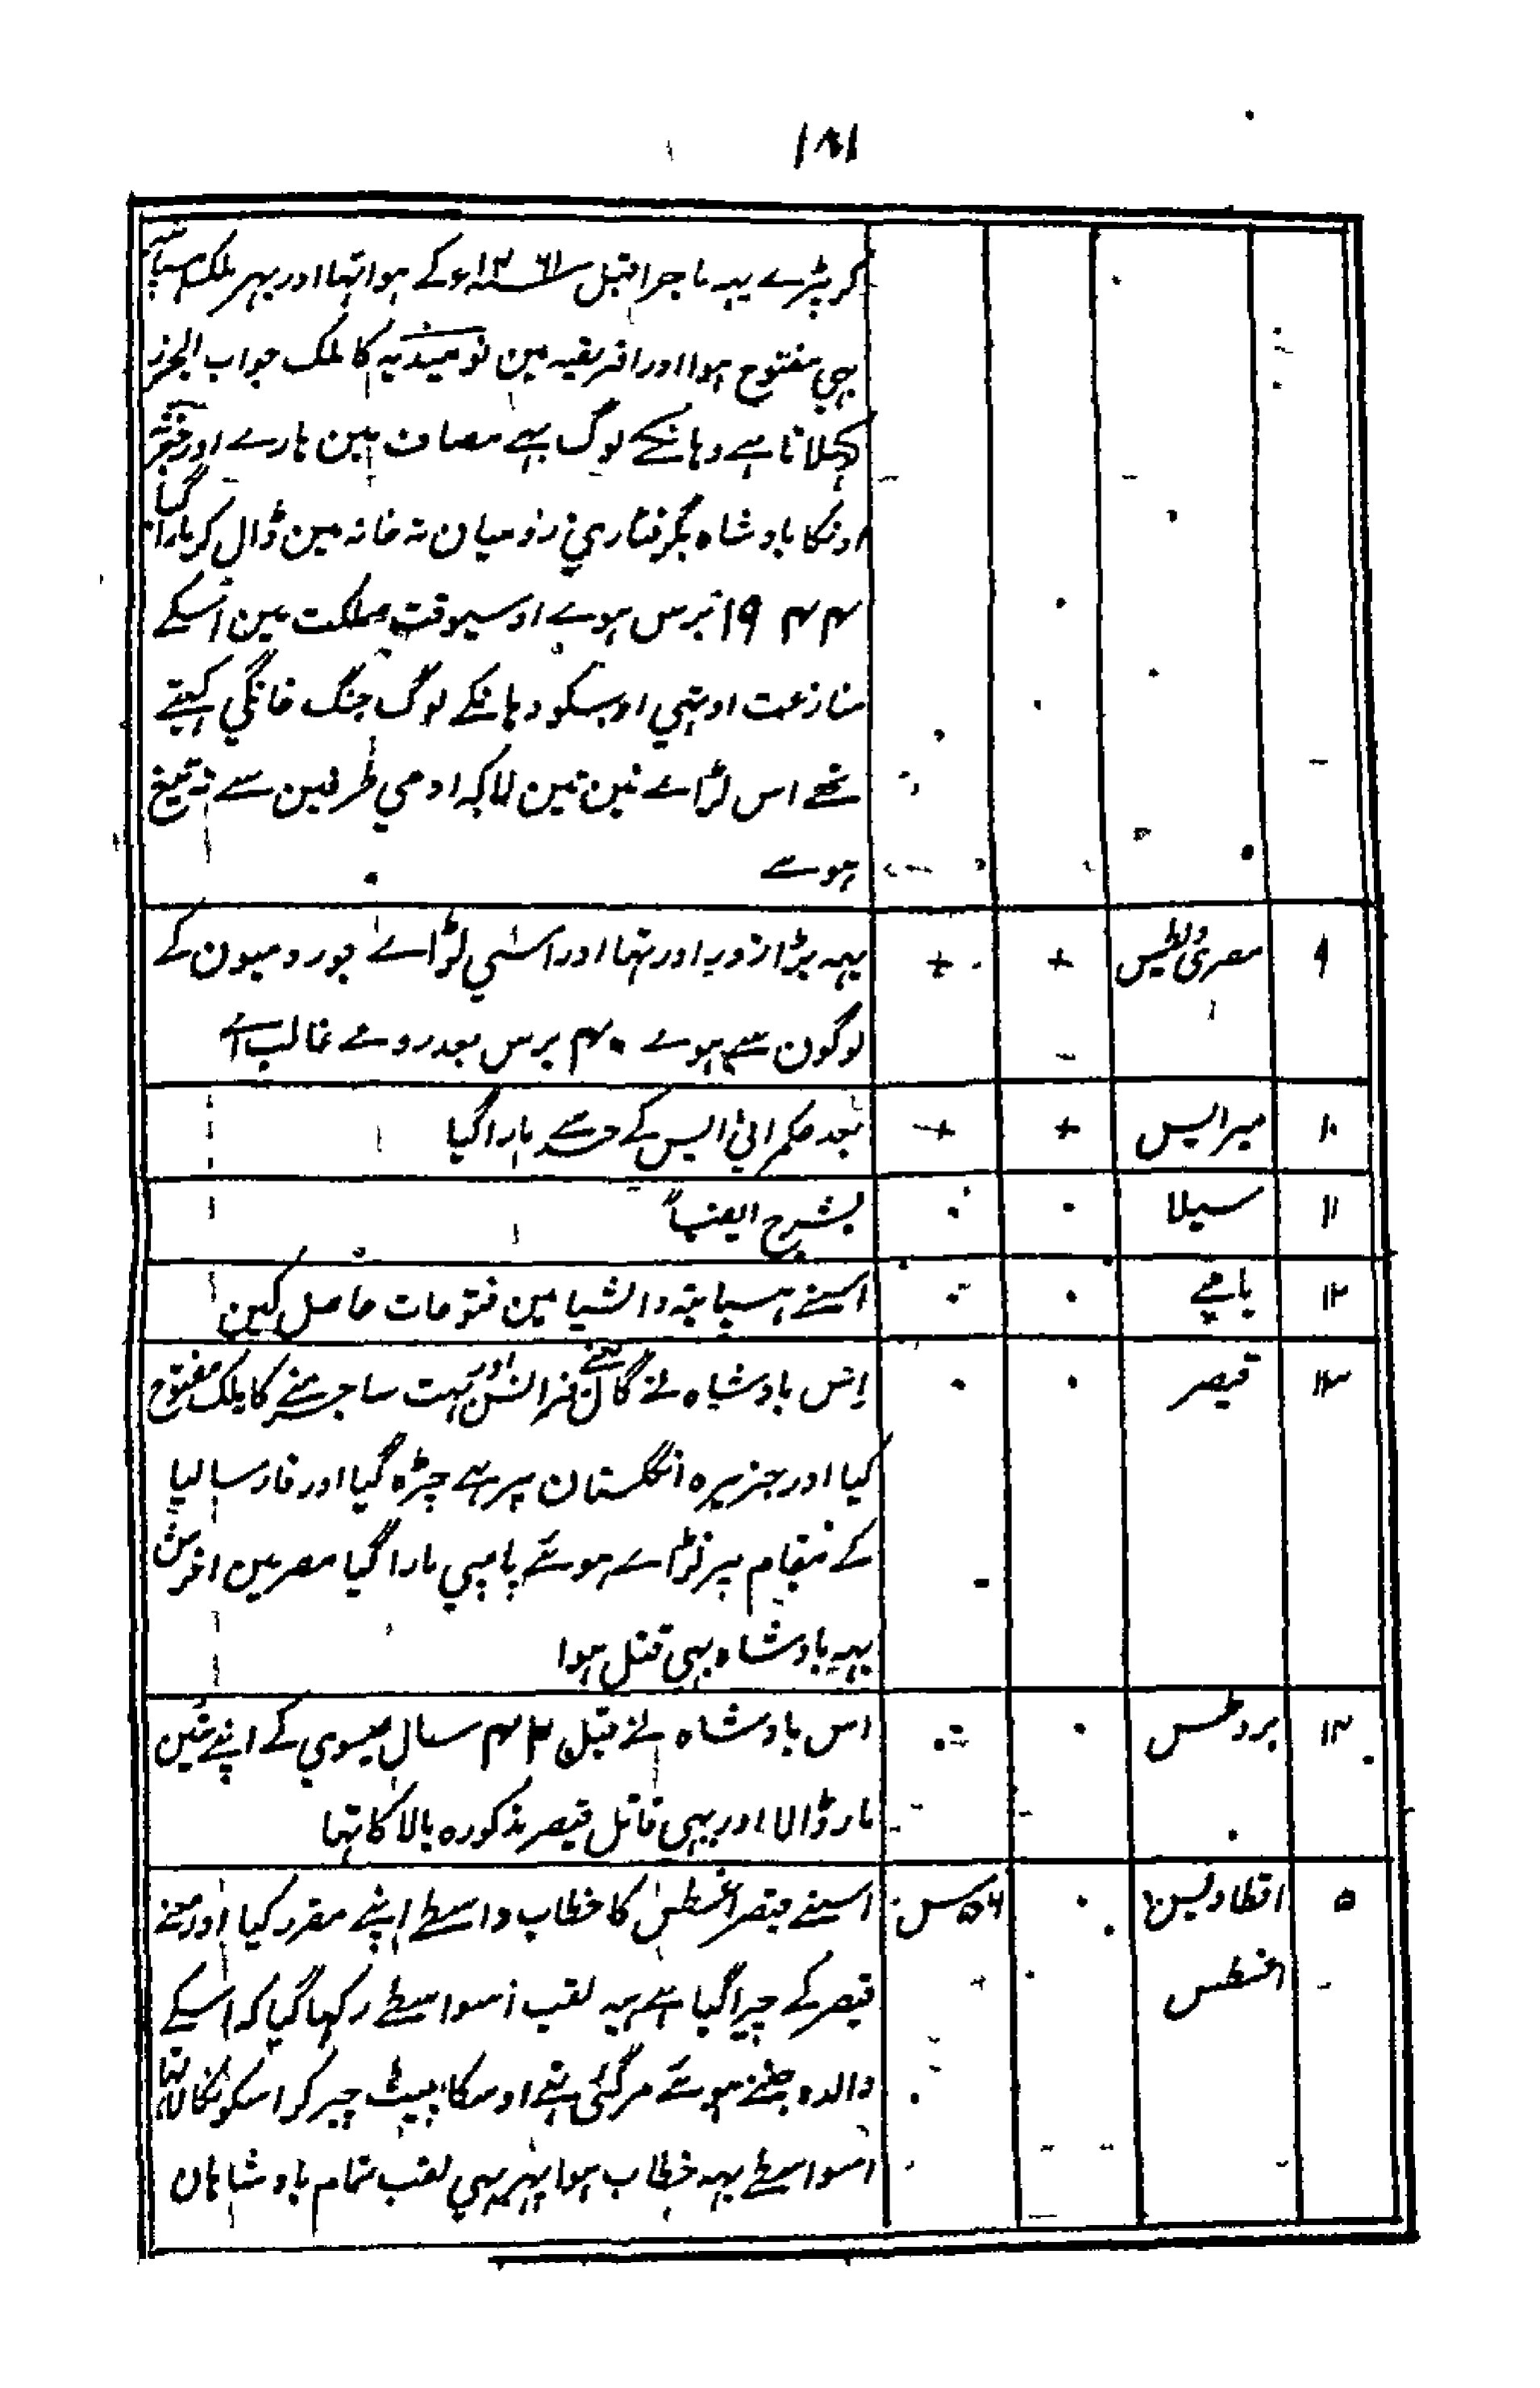 ۱۸۱
کر پڑے یہہ ماجرا قبل کے ہوا تہا اور پہر ملک
بہی مفتوح ہوا اور افریقیہ مین نومیدیہ کا ملک جو اب الجزر
کہلاتا ہے وہانکے لوگ بہے مصاف مین ہارے اور
اونکا بادشاہ بگرفتاری رومیان تہ خانہ مین ڈال کر مارا گیا
۱۹۴۴ برس ہوے اوسیوقت مملکت مین اسکے
منازعت اوٹہی اوسکو وہانکے لوگ جنگ خانگی کہتے
تھے اس لڑاے مین تین لاکہہ ادمی طرفین سے تہ تیغ
ہوے
۹ مصری ڈیٹس + + یہہ بڑا زور اور تہا اور اسنی لڑاے جو رومیون کے
لوگون سے ہوے ۴۰ برس بعد رومے غالب آے
۱۰ میرایس + + بعد حکمرانی الیس کے مارا گیا
۱۱ سیلا ۰ ۰ بشرح ایضاً
۱۲ پامپے ۰ ۰ اسنے ہسپانیہ و ایشیا مین فتوحات حاصل کین
۱۳ قیصر ۰ ۰ اس بادشاہ نے گال یعنے فرانس اور بہت سا جرمنے کا ملک مفتوح
کیا اور جزیرہ انگلستان پر بہے چڑہ گیا اور فارسالیا
کے مقام پر لڑاے ہوئے پامپی مارا گیا مصر مین اخرش
یہہ بادشاہ بہی قتل ہوا
۱۴ بروطس ۰ ۰ اس بادشاہ نے قبل ۴۲ سال عیسوی کے اپنے تئین
مار ڈالا اور یہی قاتل قیصر مذکورہ بالا کا تہا
۵ اقطاویس ۰ ۵۶ س اسنے قیصر اغسطس کا خطاب واسطے اپنے مقرر کیا اور معنے
اغسطس قیصر کے چیرا گیا ہے یہہ لقب اسواسطے رکہا گیا کہ اسکے
والدہ جنتے ہوئے مرگئی تہے اوسکا پیٹ چیر کر اسکو نکالا تہا
اسواسطے یہہ خطاب ہوا پہر یہی لقب تمام بادشاہان